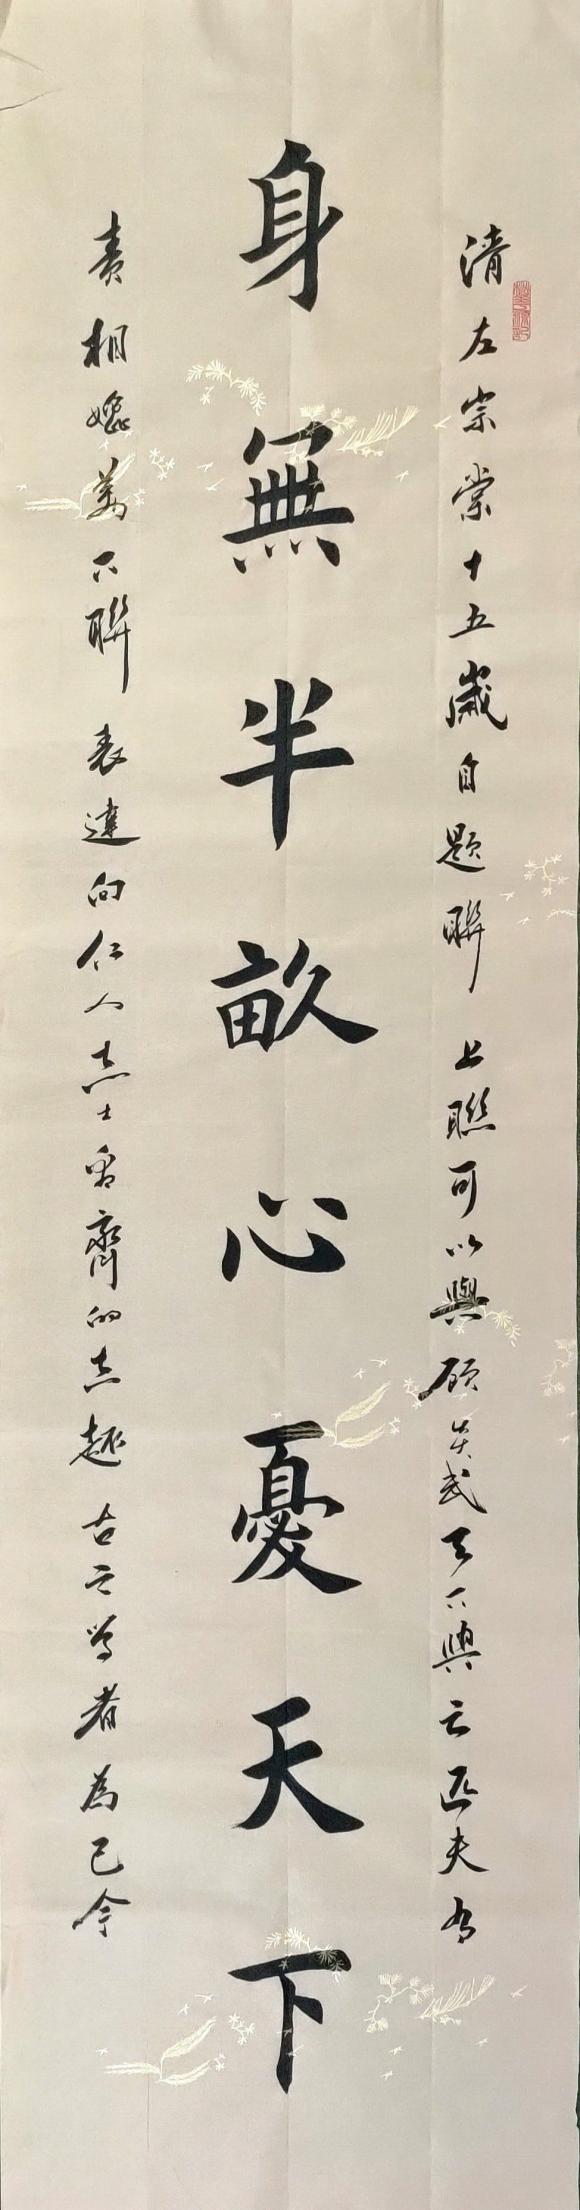 清左宗棠十五歲自題聯 上聯可以與顾炎武天下興亡匹夫有
身無半畝心憂天下
責相媲美下聯 表達向仁人志士看齊的志趣 古之學者為己今